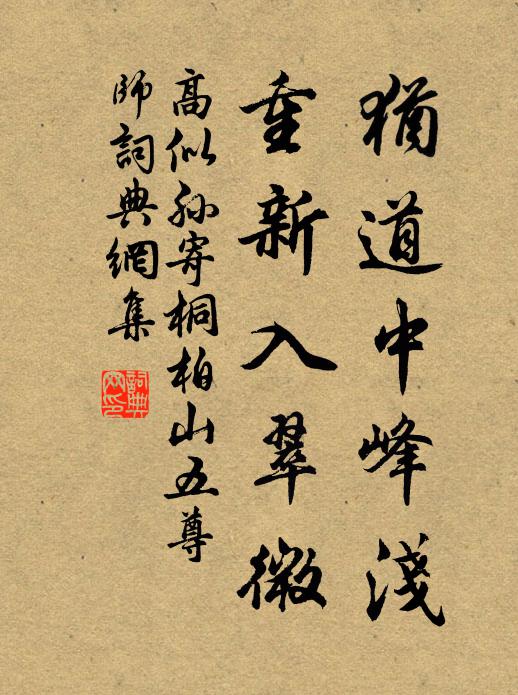 猶道中峰淺
重新入翠微
高似孫寄桐柏山五尊
師詞典網集
詞典網印